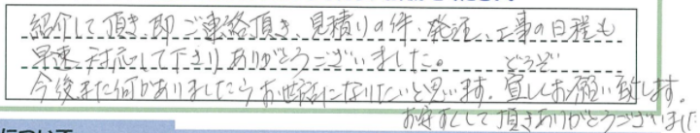 紹介して頂き、即ご連絡頂き、見積りの件、発注、工事の日程も
早速対応して下さりありがとうございました。
どうぞ
今後また何かありましたらお世話になりたいと思います。宜しくお願い致します。
お安くして頂きありがとうございました
について